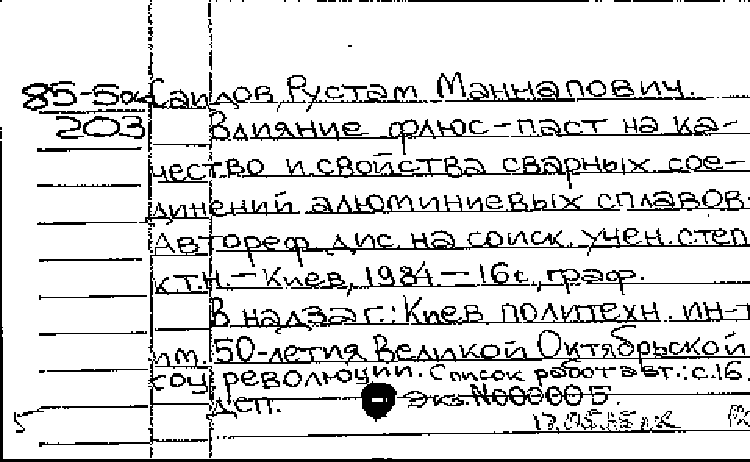 85-5околСаидов Рустам Маннапович.
203 Влияние флюс-паст на ка-
чество и свойства сварных сое-
динений алюминиевых сплавов.
Автореф. дис. на соиск. учен. степ
к.т.н. - Киев, 1984 - 16 с., граф.
В надзаг.: Киев. политехн. ин-т
им. 50-летия Великой Октябрьской
соц. революции. Список работ авт.: с.16.
Деп. Экз. N000005.